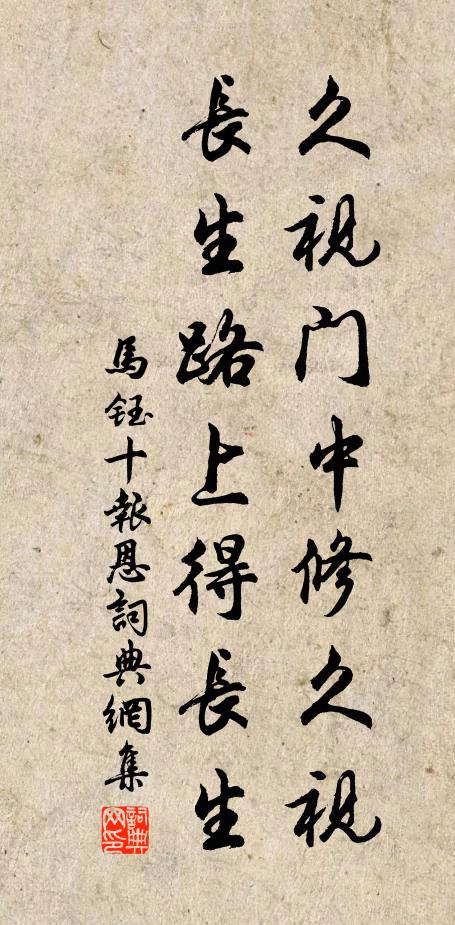 久視門中修久視
長生路上得長生
馬鈺十報恩詞典網集
詞典網印